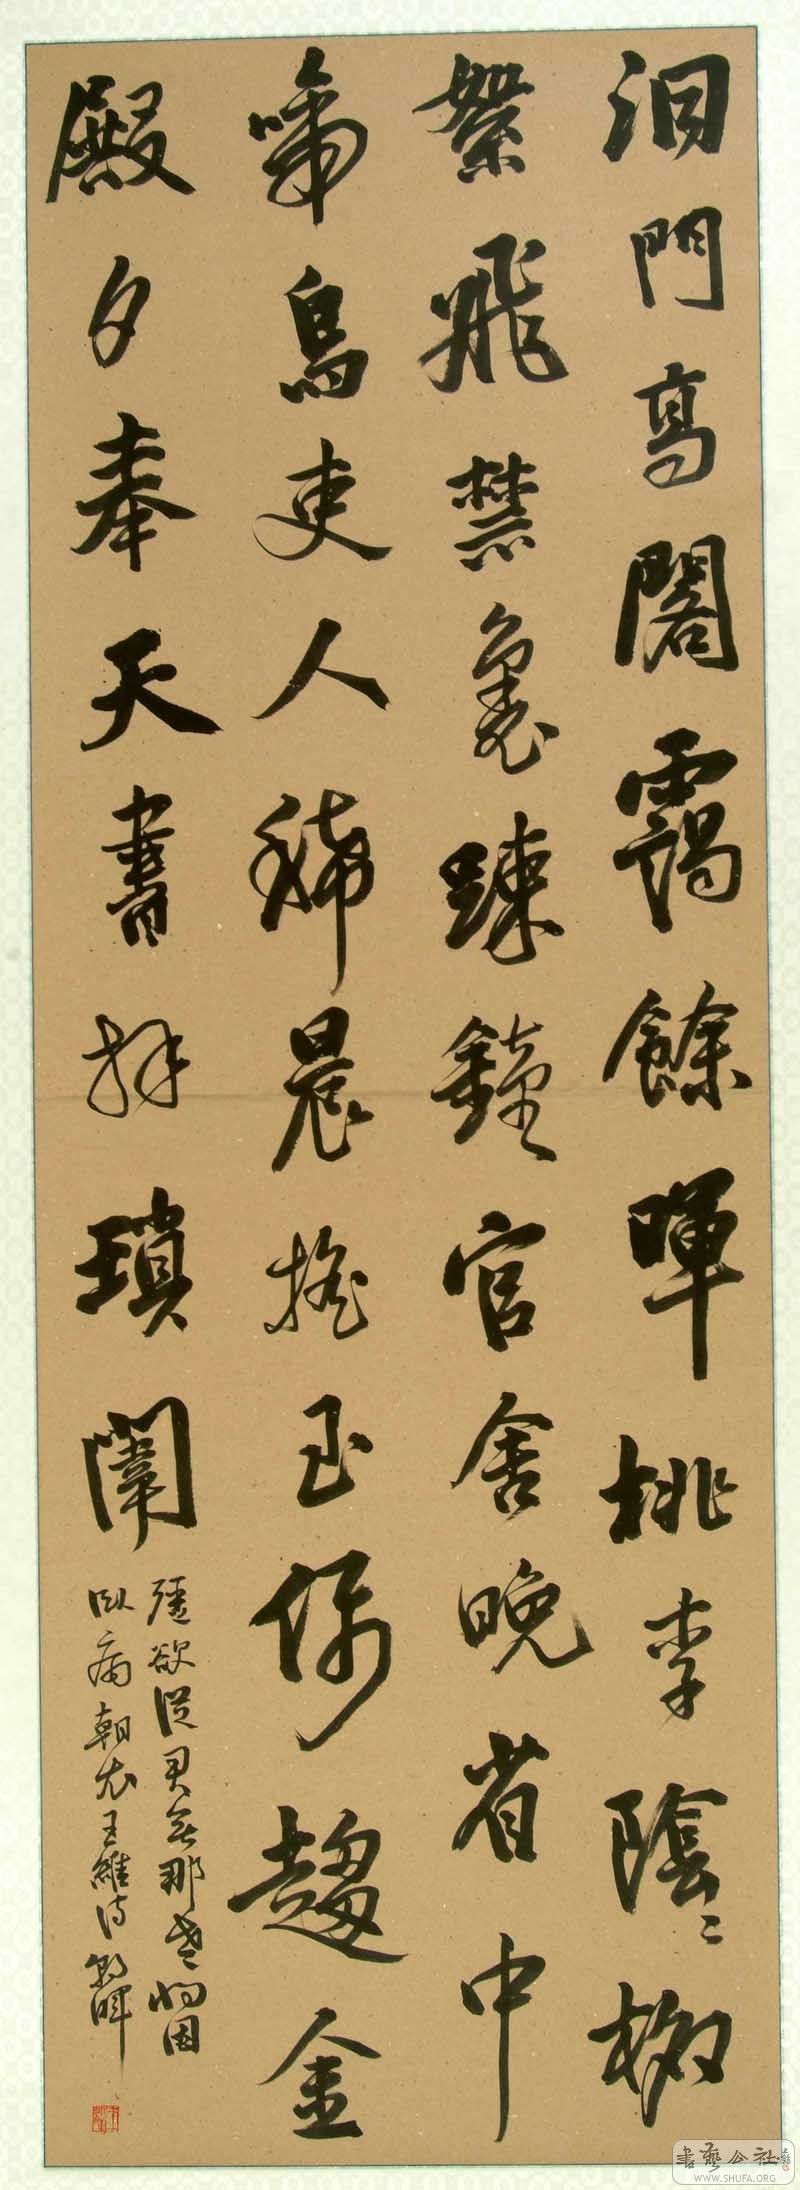 洞門高閣靄餘暉桃李陰〻柳
絮飛禁裏踈鐘官舍晚省中
啼鳥吏人稀晨搖玉佩趨金
殿夕奉天書拜瑣闈
彊欲從君無那老將因
臥病朝衣王維詩
書藝公社
WWW.SHUFA.ORG